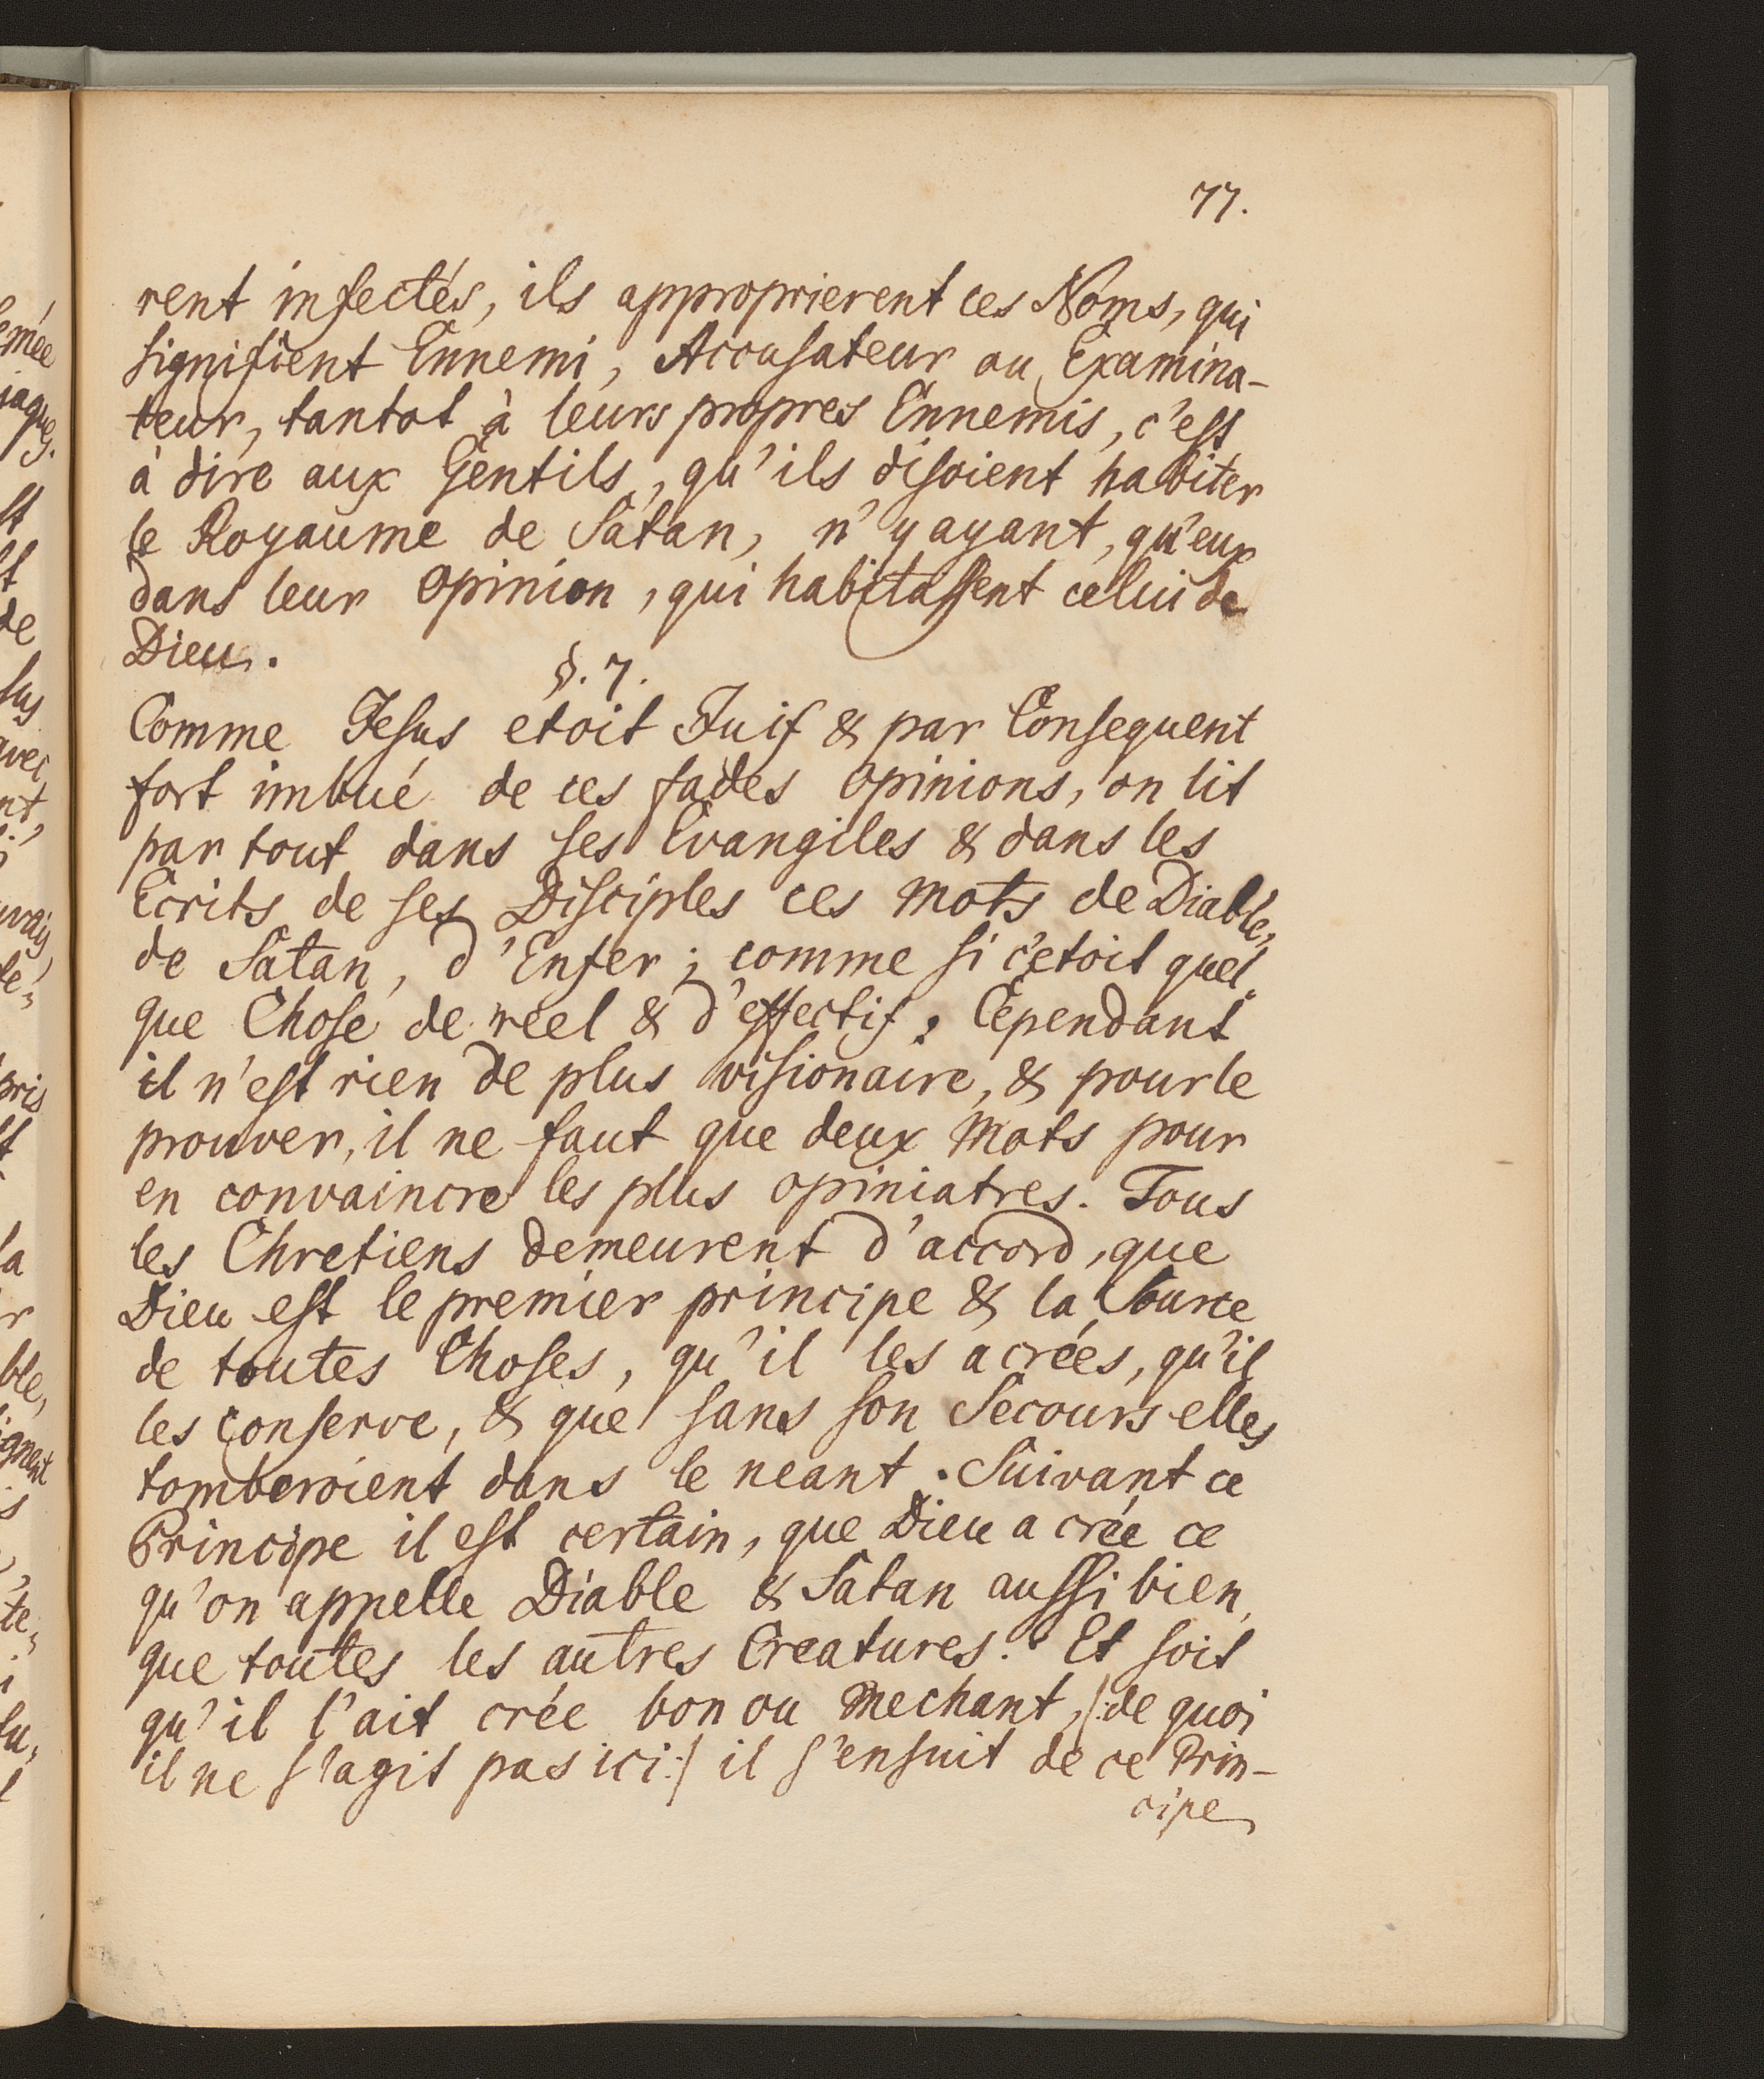 77.
rent infectés, ils approprierent ces Noms, qui
signifient Ennemi, Accusateur ou Examina-
teur, tantot à leurs propres Ennemis, c'est
à dire aux Gentils, qu'ils disoient habiter
le Royaume de Satan, n'y ayant, qu'eux
dans leur opinion, qui habitassent celui de
Dieu.
§. 7.
Comme Jesus etoit Juif & par Consequent
fort imbué de ces fades opinions, on lit
par tout dans ses Evangiles & dans les
Ecrits de ses Disciples ces mots de Diable,
de Satan, d'Enfer; comme si c'etoit quel-
que Chose de réel & d'effectif. Cependant
il n'est rien de plus visionaire, & pour le
prouver, il ne faut que deux mots pour
en convaincre les plus opiniatres. Tous
les Chretiens demeurent d'accord, que
Dieu est le premier principe & la Source
de toutes Choses, qu'il les a crées, qu'il
les conserve, & que sans son Secours elles
tomberoient dans le neant. Suivant ce
Principe il est certain, que Dieu a crée ce
qu'on appelle Diable & Satan aussi bien,
que toutes les autres Creatures. Et soit
qu'il l'ait crée bon ou mechant, (:de quoi
il ne s'agit pas ici:) il s'ensuit de ce Prin-
cipe